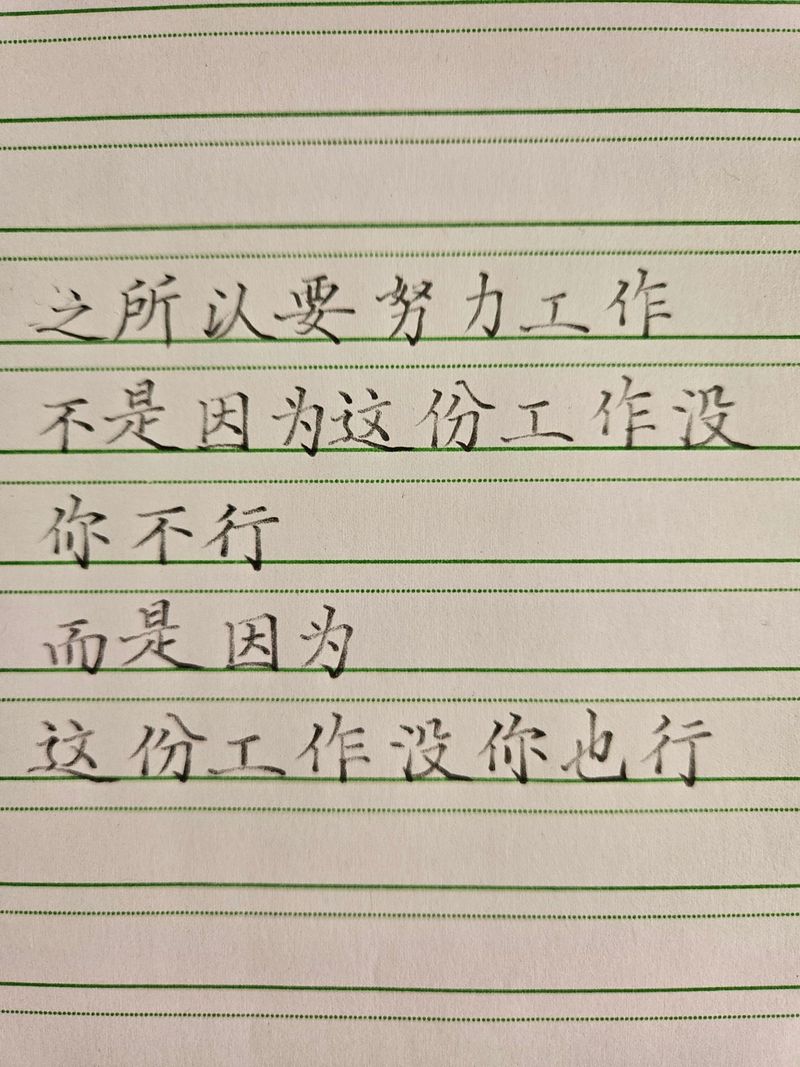 之所以要努力工作
不是因为这份工作没
你不行
而是因为
这份工作没你也行